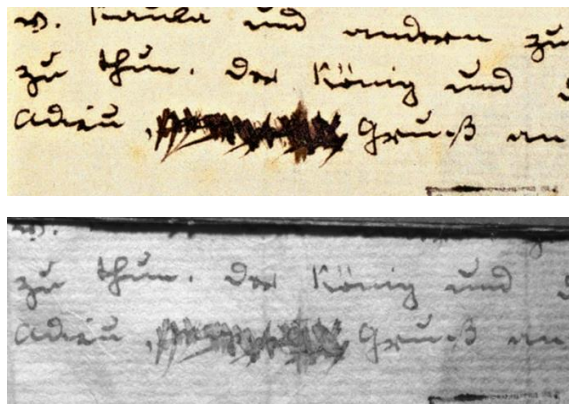 v. Kaula und andern zu
zu thun. Der König und
adieu, Gruß an
zu thun. Der König und
adieu, Gruß an